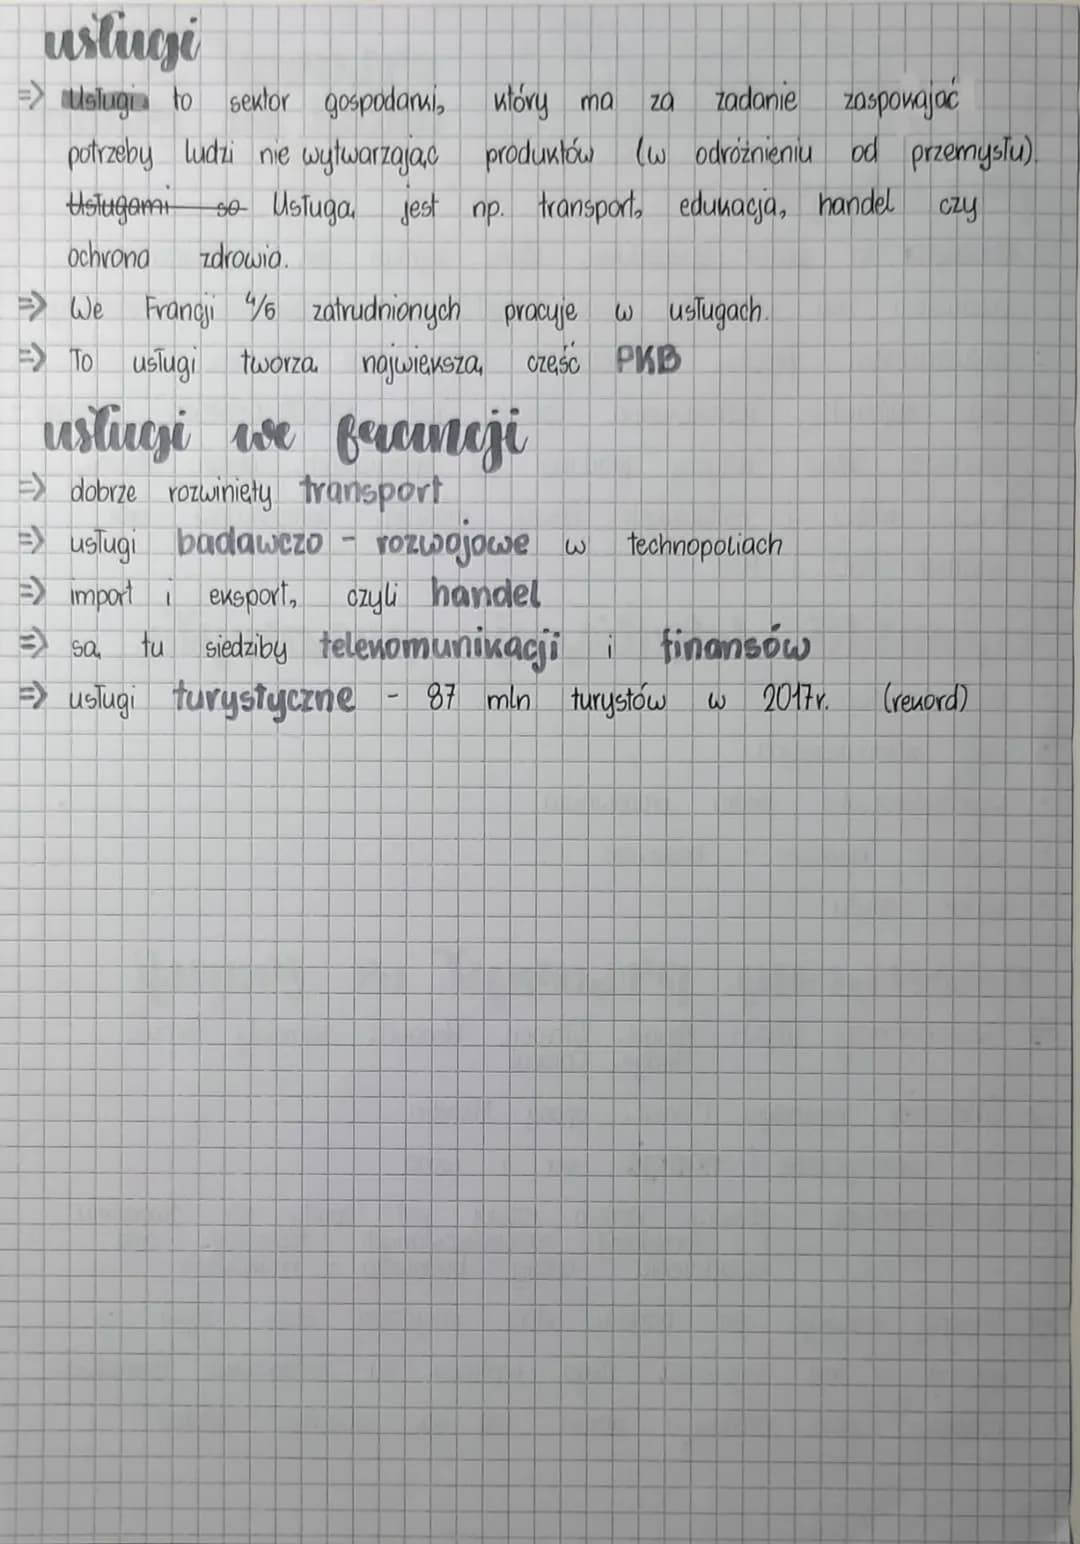 usługi
=> Usługi to sektor gospodarki, który ma za zadanie zaspokajać
potrzeby ludzi nie wytwarzając produktów (w odróżnieniu od przemysłu).
Usługami są Usługą jest np. transport, edukacja, handel czy
ochrona zdrowia.
=> We Francji 4/5 zatrudnionych pracuje w usługach.
=> To usługi tworzą największą część PKB
usługi we francji
=> dobrze rozwinięty transport
=> usługi badawczo - rozwojowe w technopoliach
=> import i eksport, czyli handel
=> są tu siedziby telekomunikacji i finansów
=> usługi turystyczne - 87 mln turystów w 2017r. (rekord)